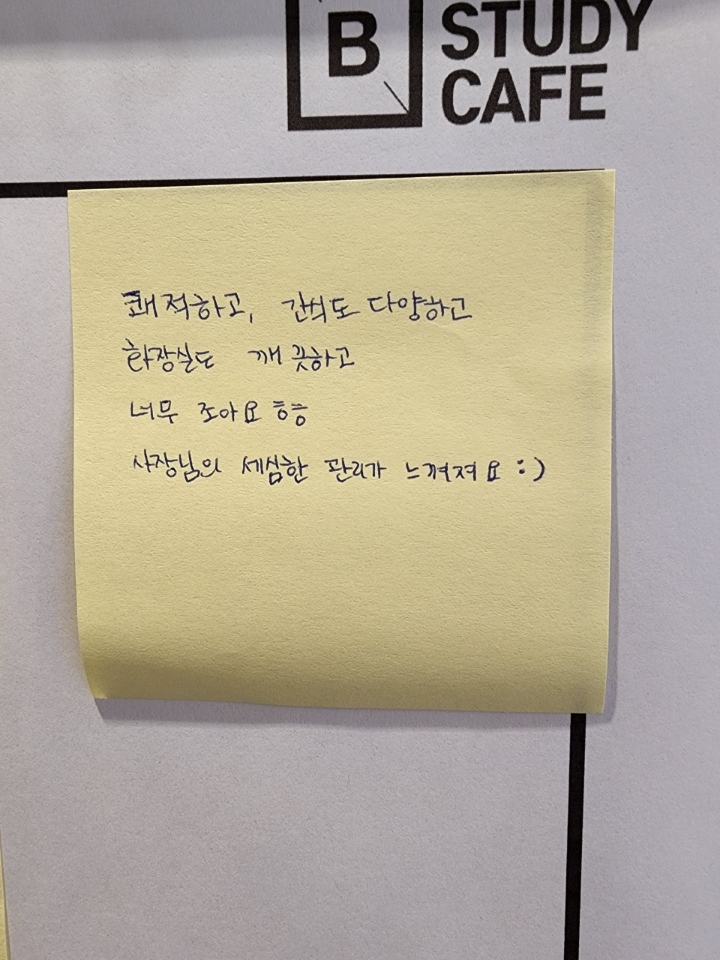 B
STUDY
CAFE
쾌적하고, 간식도 다양하고
화장실도 깨끗하고
너무 조아요 흐흐
사장님의 세심한 관리가 느껴져요 :)